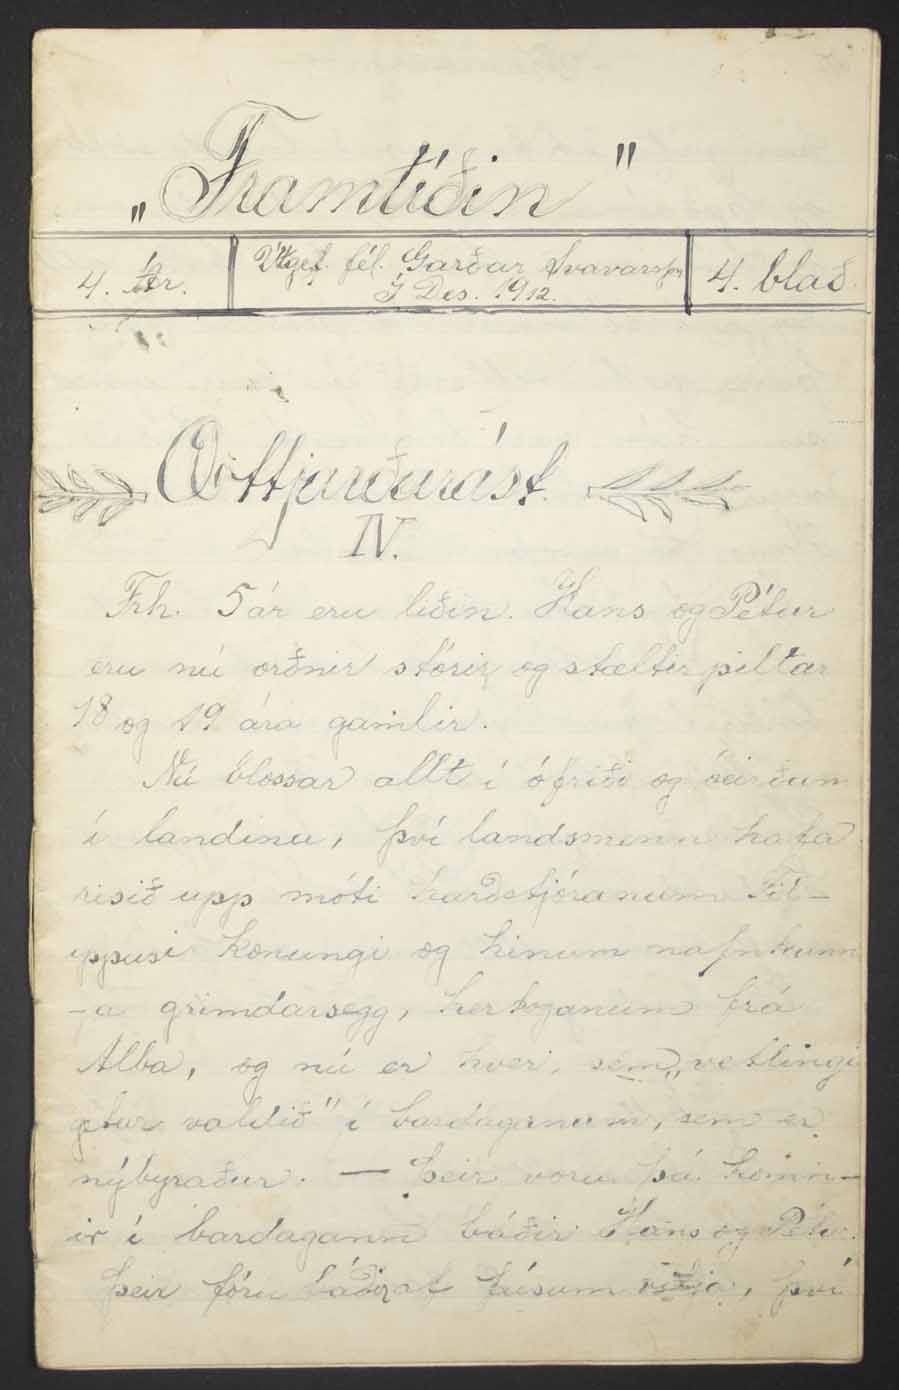 „Framtíðin"
4. Ár.
Útgef. fél. Garðar Svavarsson
Í Des. 1912.
4. blað.
Ættjarðarást.
IV.
Frh. 5 ár eru liðin. Hans og Pétur
eru nú orðnir stórir og stæltir piltar
18 og 19 ára gamlir.
Nú blossar allt í ófriði og óeirðum
í landinu, því landsmenn hafa
risið upp móti harðstjóranum Fil-
uppusi konungi og hinum nafnkunn
-a grimdarsegg, hertoganum frá
Alba, og nú er hver, sem „vetlingi
getur valdið" í bardaganum, sem er
nýbyraður. — Þeir voru þá komn-
ir í bardagann báðir Hans og Pétur.
Þeir fóru báðir af fúsum vilja, því